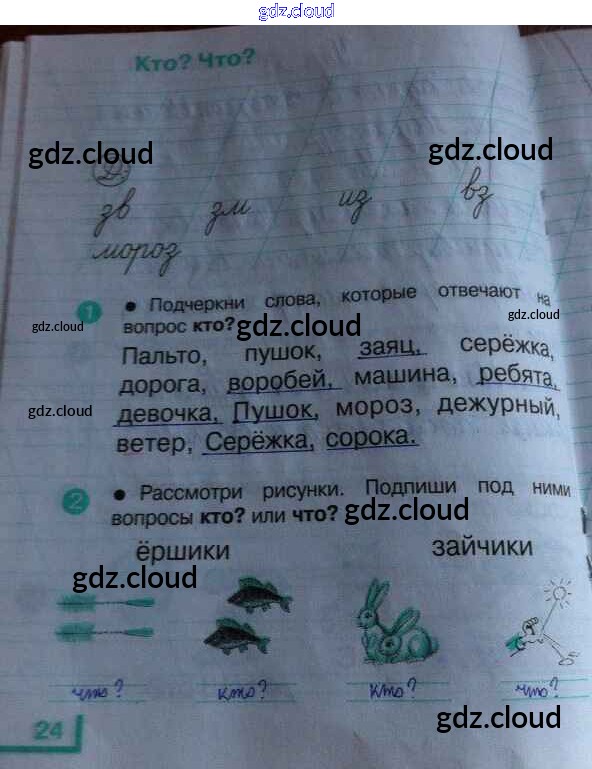 gdz.cloud
Кто? Что?
gdz.cloud gdz.cloud
зв зм из вз
мороз
1 • Подчеркни слова, которые отвечают на
gdz.cloud вопрос кто? gdz.cloud gdz.cloud
Пальто, пушок, заяц, серёжка,
дорога, воробей, машина, ребята,
gdz.cloud девочка, Пушок, мороз, дежурный,
ветер, Серёжка, сорока.
2 • Рассмотри рисунки. Подпиши под ними
вопросы кто? или что? gdz.cloud
ёршики зайчики
gdz.cloud gdz.cloud
что? кто? кто? что?
24 gdz.cloud